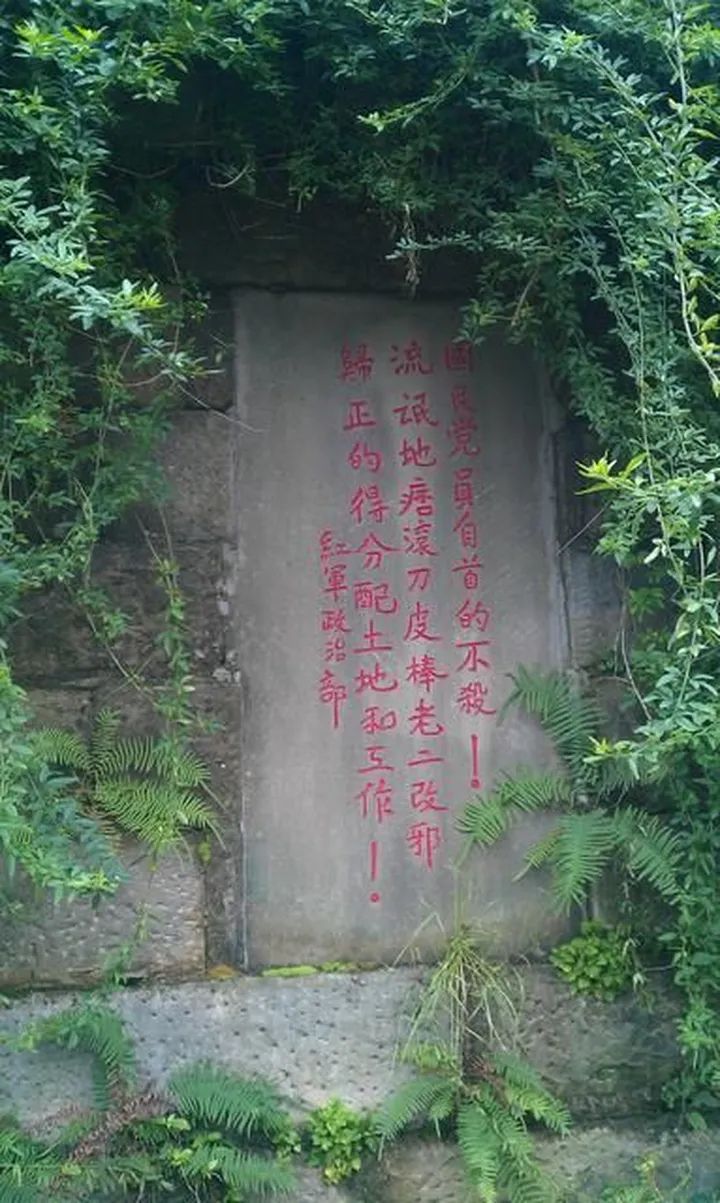 國民党員自首的不殺！
流氓地痞滾刀皮棒老二改邪
歸正的得分配土地和工作！
紅軍政治部